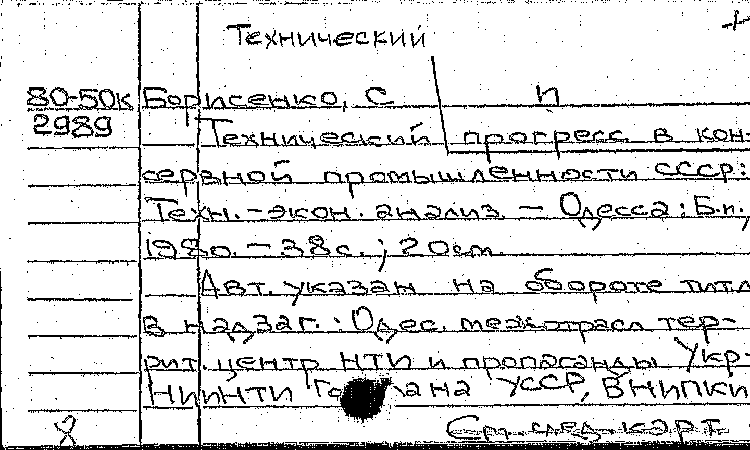 Технический
80-50к Борисенко, С п
2989 Технический прогресс в кон-
сервной промышленности СССР:
Техн.-экон. анализ. - Одесса: Б.и.,
1980. - 38с.; 20см.
Авт. указан на обороте тит.
в надзаг.: Одес. межотрасл тер-
рит. центр НТИ и пропаганды Укр-
НИИНТИ УССР, ВНИПКИ
См. след. карт.